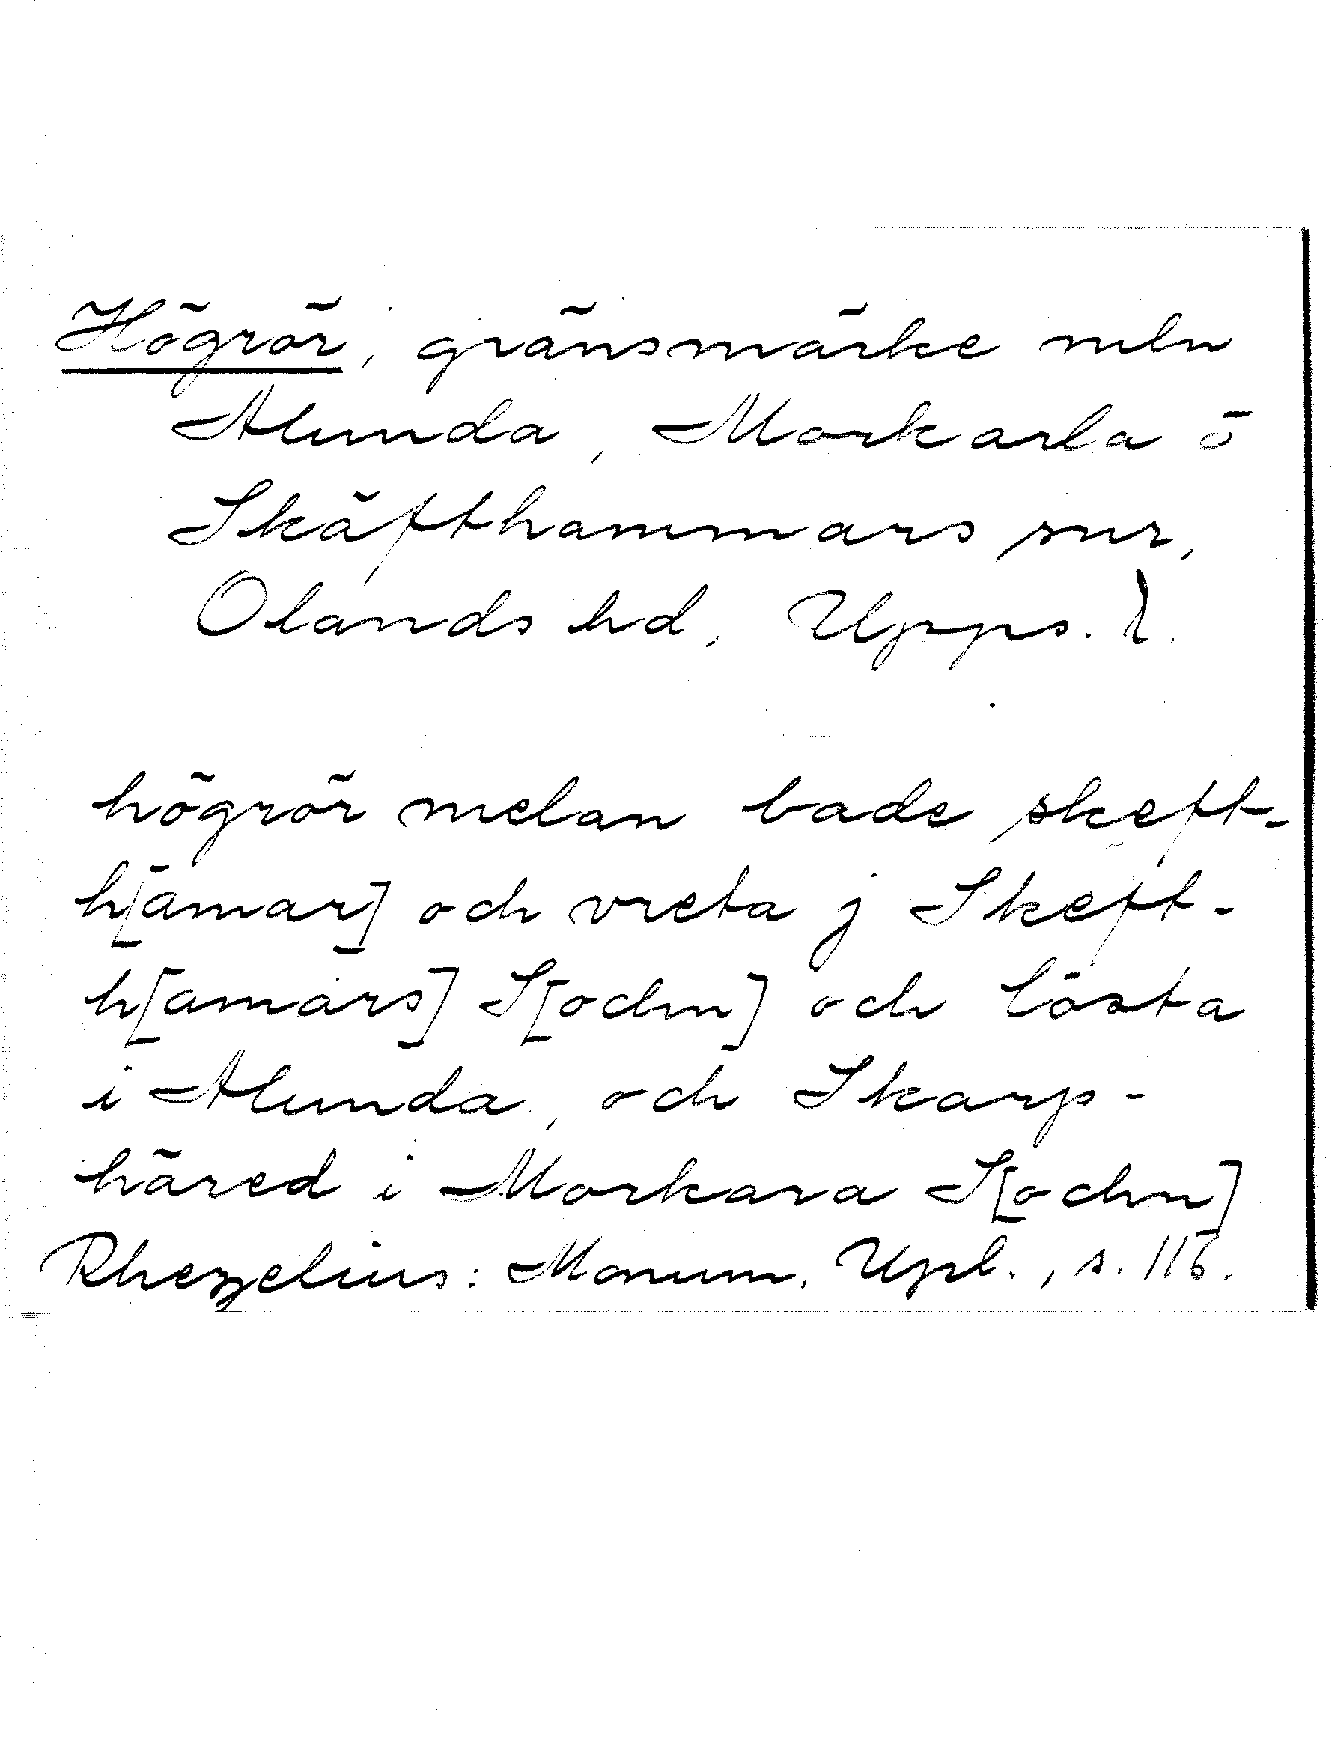 Högrör, gränsmärke mln
Alunda, Morkarla o
Skäfthammars snr,
Olands hd, Upps. l.
högrör melan bade skeft-
h[amar] och vreta j Skeft-
h[amars] S[ochn] och lösta
i Alunda, och Skarp-
häred i Morkara S[ochn]
Rhezelius: Monum. Upl., s. 116.